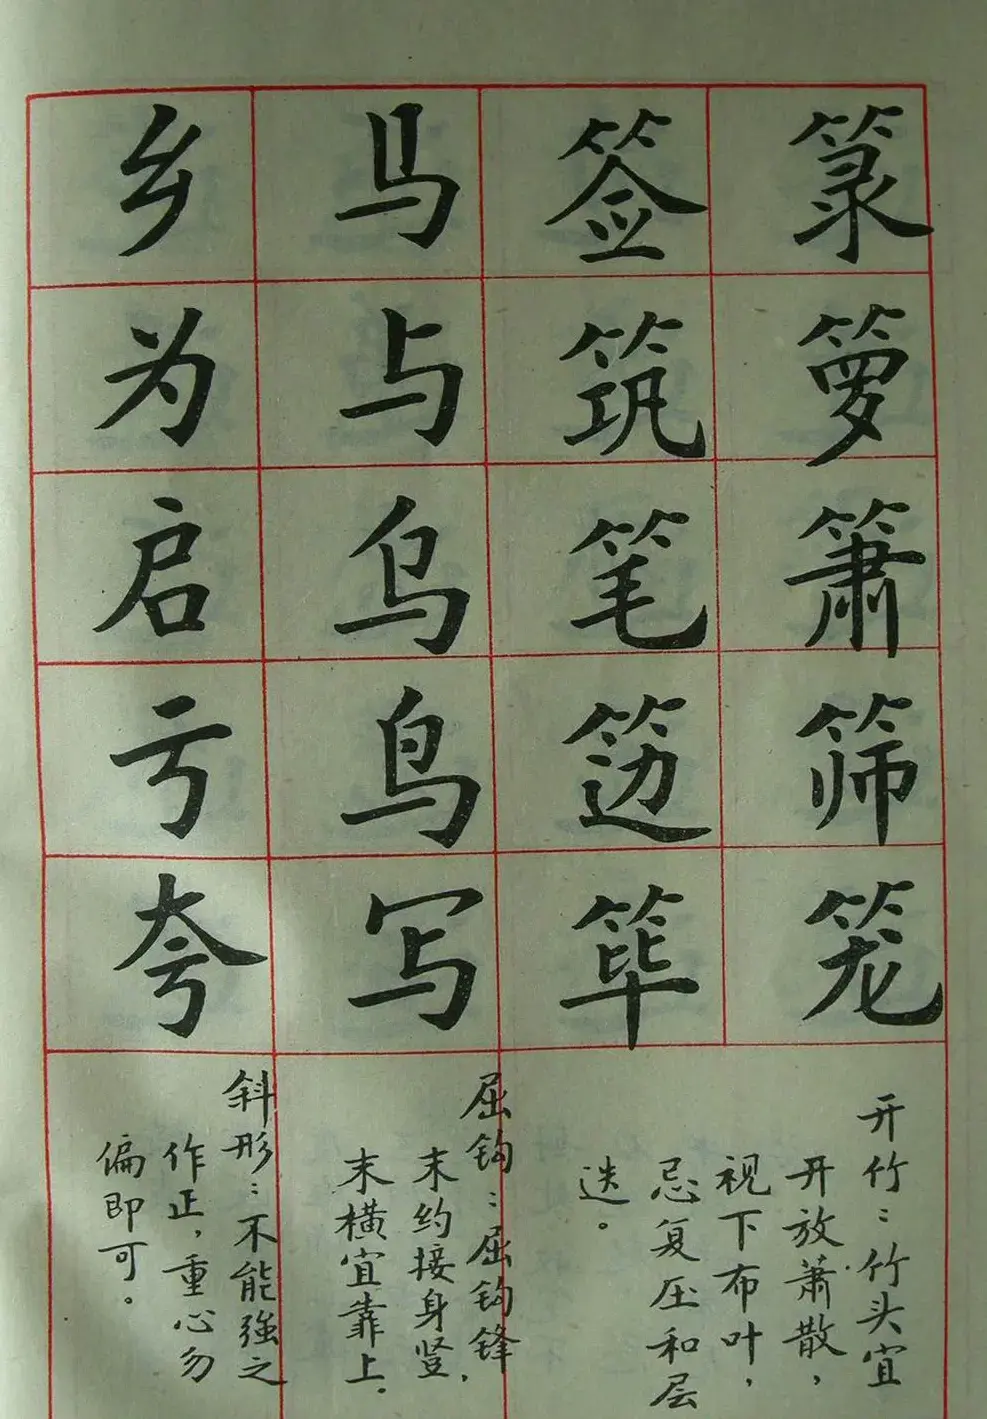 箓箩箫筛笼
签筑笔笾筚
马与乌鸟写
乡为启亏夸
开竹：竹头宜
开放萧散，
视下布叶，
忌复压和层
迭。
屈钩：屈钩锋
末约接身竖，
末横宜靠上．
斜形：不能強之
作正，重心勿
偏即可。